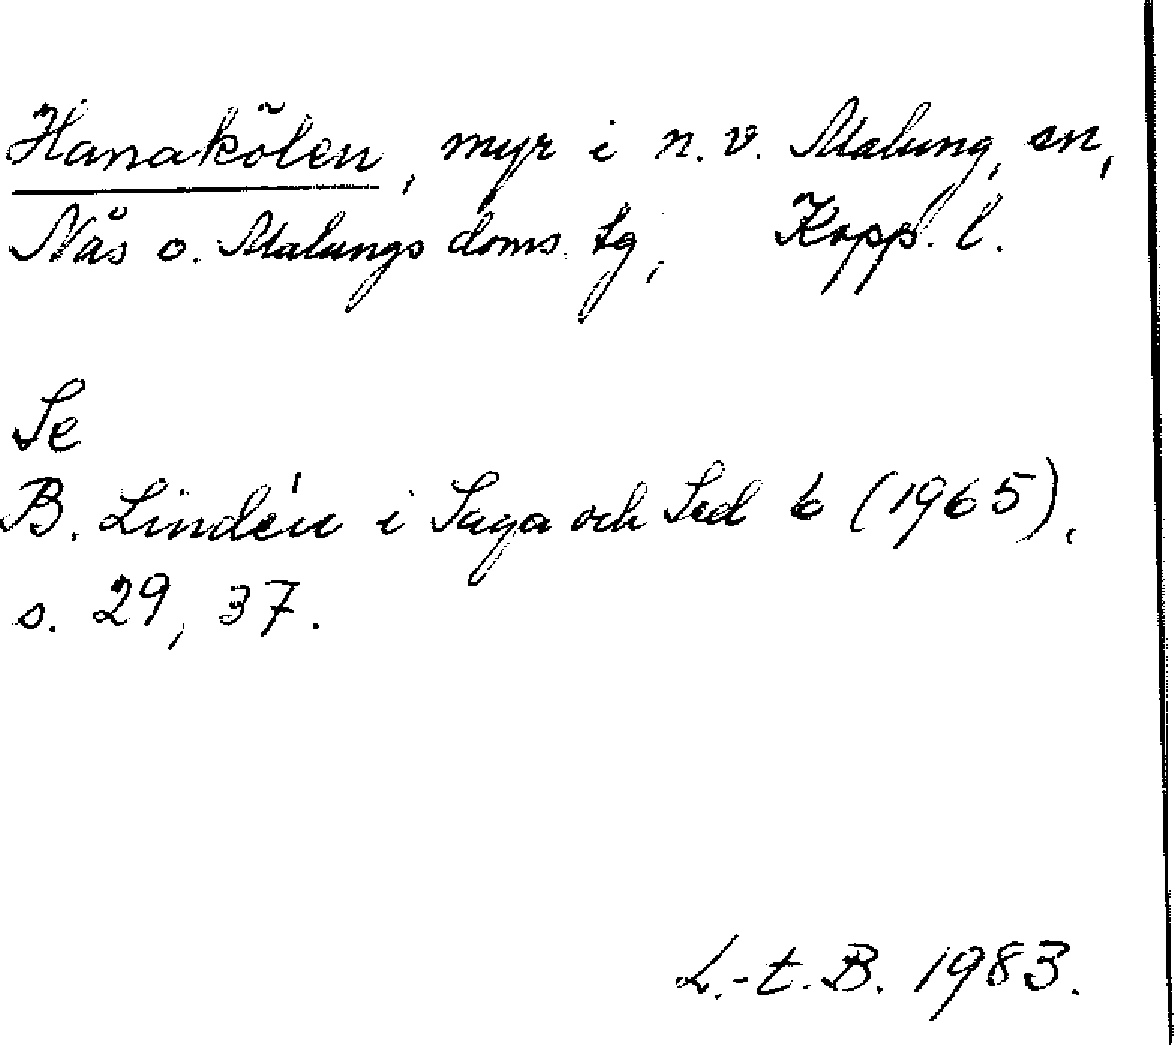 Hanakölen, myr i n.v. Malung, sn,
Nås o. Malungs doms. tg, Kopp. l.
Se
B. Lindén i Saga och Sed 6 (1965),
s. 29, 37.
L.-t. B. 1983.